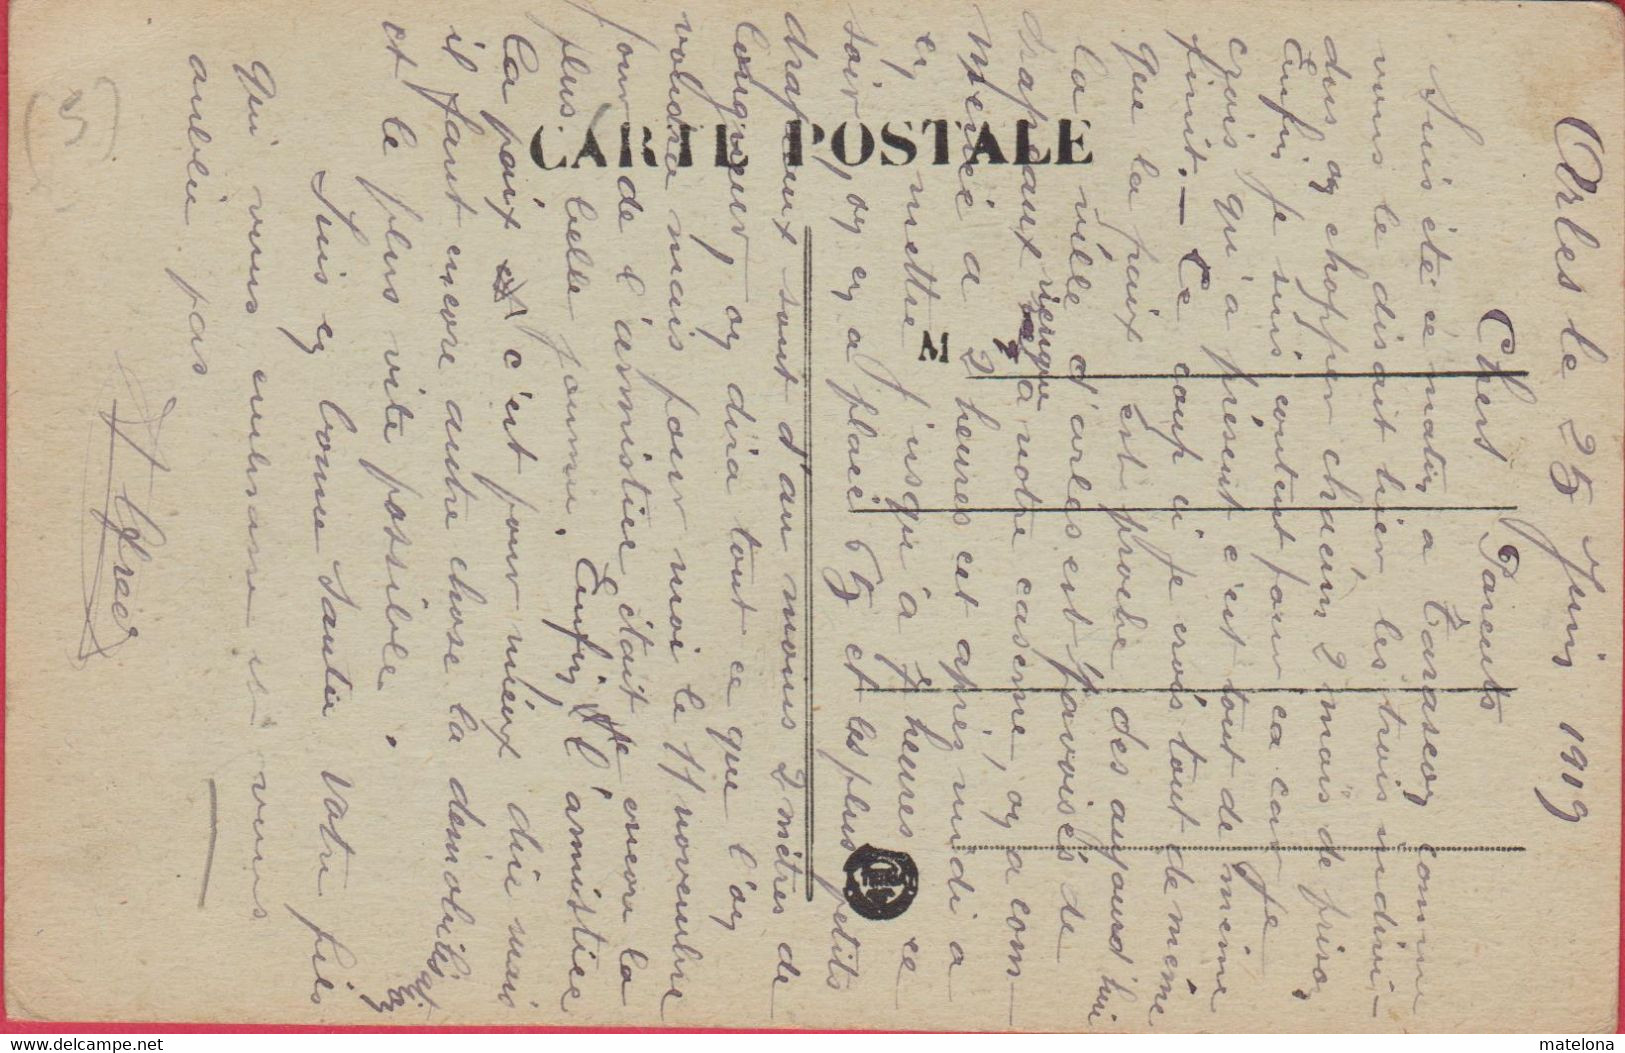 Arles le 25 Juin 1919
Chers Parents
Suis été ce matin a Tarascon comme
vous le disait hier les trois indivi-
dus on chopper chacun 2 mois de prison
Enfin je suis content pour ca car Je
crois qu'a présent c'est tout de meme
finit. — Ce coup ci je crois tout de même
que la paix est proche des aujourd'hui
la ville d'arles est pavoisés de
drapeaux rien que a notre caserne, on a com-
mencé a 2 heures et apres midi a
en mettre jusqu'a 7 heures ce
soir, on en a placé 65 et les plus petits
drapeaux sont d'au moins 2 métres de
longueur, on dira tout ce que l'on
voudra mais pour moi le 11 novembre
jour de l'armistice était encore la
plus belle journée. Enfin l'armistice
la paix c'est pour mieux dire mais
il faut encore autre chose la demobilisation
et le plus vite possible.
Suis en bonne Santée Votre fils
qui vous embrasse et vous
oublie pas
CARTE POSTALE
M